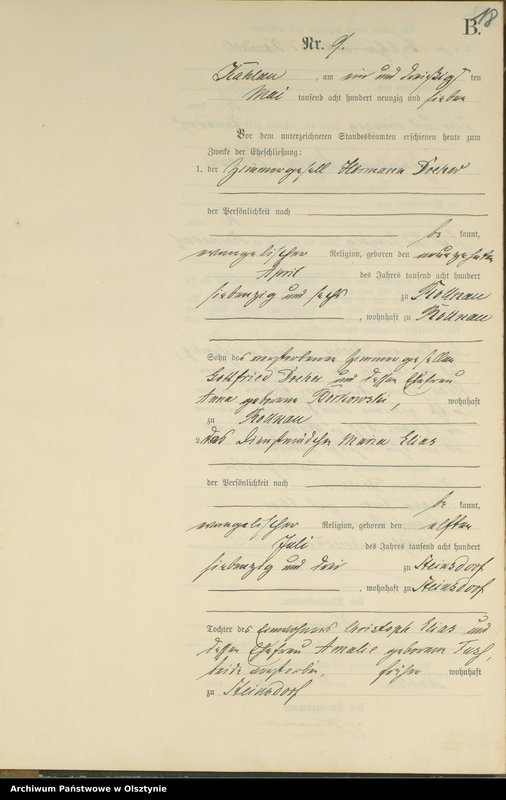 18
B.
Nr. 9.
Kahlau, am ein und dreißigsten
Mai tausend acht hundert neunzig und sieben
Vor dem unterzeichneten Standesbeamten erschienen heute zum
Zwecke der Eheschließung:
1. der Zimmergesell Hermann
der Persönlichkeit nach
be kannt,
evangelischer Religion, geboren den neunzehnten
April des Jahres tausend acht hundert
siebenzig und sechs zu Rollnau
, wohnhaft zu Rollnau
Sohn des verstorbenen Zimmergesellen
Gottfried und dessen Ehefrau
Anna geborene wohnhaft
zu Rollnau
2. das Dienstmädchen Maria Elias
der Persönlichkeit nach
be kannt,
evangelischer Religion, geboren den elften
Juli des Jahres tausend acht hundert
siebenzig und drei zu Steinsdorf
, wohnhaft zu Steinsdorf
Tochter des Einwohners Christoph Elias und
dessen Ehefrau Amalie geborene
beide verstorben, früher wohnhaft
zu Steinsdorf
Archiwum Państwowe w Olsztynie